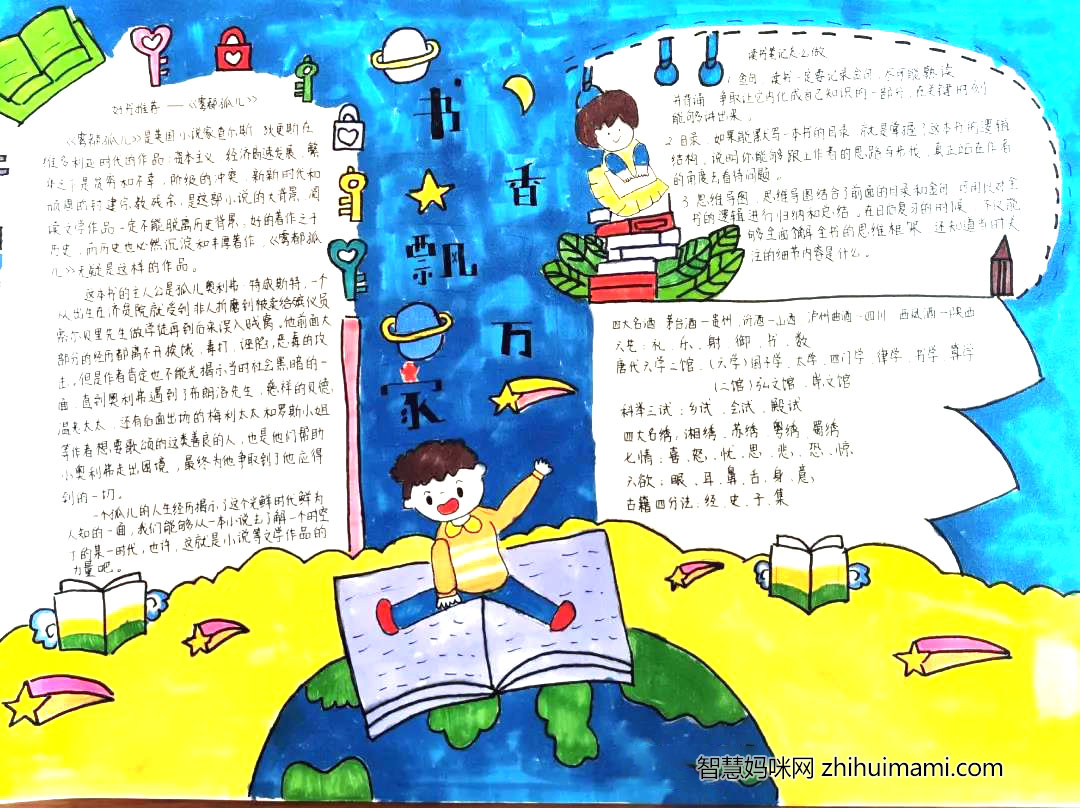 书香飘万家
好书推荐——《雾都孤儿》
《雾都孤儿》是英国小说家查尔斯·狄更斯在
维多利亚时代的作品。资本主义 经济高速发展，繁
华之下是贫穷和不幸，阶级的冲突，新新时代和
顽固的封建宗教残余，是这部小说的大背景，阅
读文学作品一定不能脱离历史背景，好的著作之于
历史，而历史也必然沉淀和丰厚著作，《雾都孤
儿》无疑是这样的作品。
这本书的主人公是孤儿奥利弗·特威斯特，一个
从出生在济贫院就受到非人折磨到被卖给殡仪员
索尔贝里先生做学徒再到后来误入贼窝，他前面大
部分的经历都离不开挨饿，毒打，诬陷，恶毒的攻
击，但是作者肯定也不能光揭示当时社会黑暗的一
面，直到奥利弗遇到了布朗洛先生，慈祥的贝德
温太太，还有后面出场的梅利太太和罗斯小姐
等作者想要歌颂的这类善良的人，也是他们帮助
小奥利弗走出困境，最终为他争取到了他应得
到的一切。
一个孤儿的人生经历揭示了这个光鲜时代鲜为
人知的一面，我们能够从一本小说去了解一个时空
下的某一时代，也许，这就是小说等文学作品的
力量吧。
读书笔记怎么做
1 金句 读书一定要记录金句，尽可能熟读
并背诵 争取让它内化成自己知识的一部分，在关键时刻
能够讲出来。
2 目录，如果能默写一本书的目录 就是掌握了这本书的逻辑
结构，说明你能够跟上作者的思路与步伐，真正站在作者
的角度去看待问题。
3 思维导图，思维导图结合了前面的目录和金句，可用以对全
书的逻辑进行归纳和总结，在日后复习的时候，不仅能
够全面了解全书的思维框架 还知道当时关
注的细节内容是什么。
四大名酒 茅台酒—贵州，汾酒—山西 泸州曲酒—四川 西凤酒—陕西
六艺：礼、乐、射 御 书、数
唐代六学二馆，（六学）国子学、太学、四门学 律学、书学、算学
（二馆）弘文馆、崇文馆
科举三试：乡试、会试、殿试
四大名绣：湘绣、苏绣、粤绣、蜀绣
七情：喜、怒、忧、思、悲、恐、惊
六欲：眼、耳、鼻、舌、身、意，
古籍四分法：经、史、子、集
智慧妈咪网 zhihuimami.com